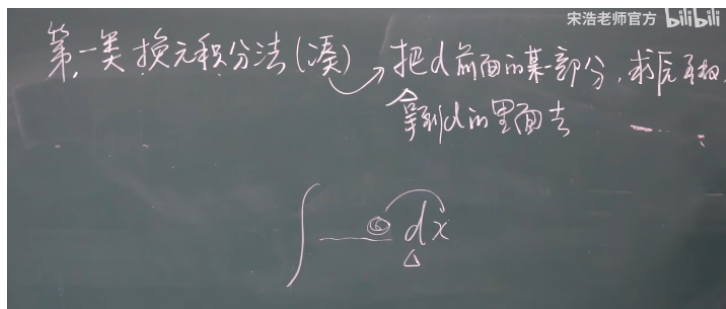 宋浩老师官方 bilibili
第一类换元积分法(凑) 把d前面的某部分,求原函数
拿到d的里面去
∫ dx